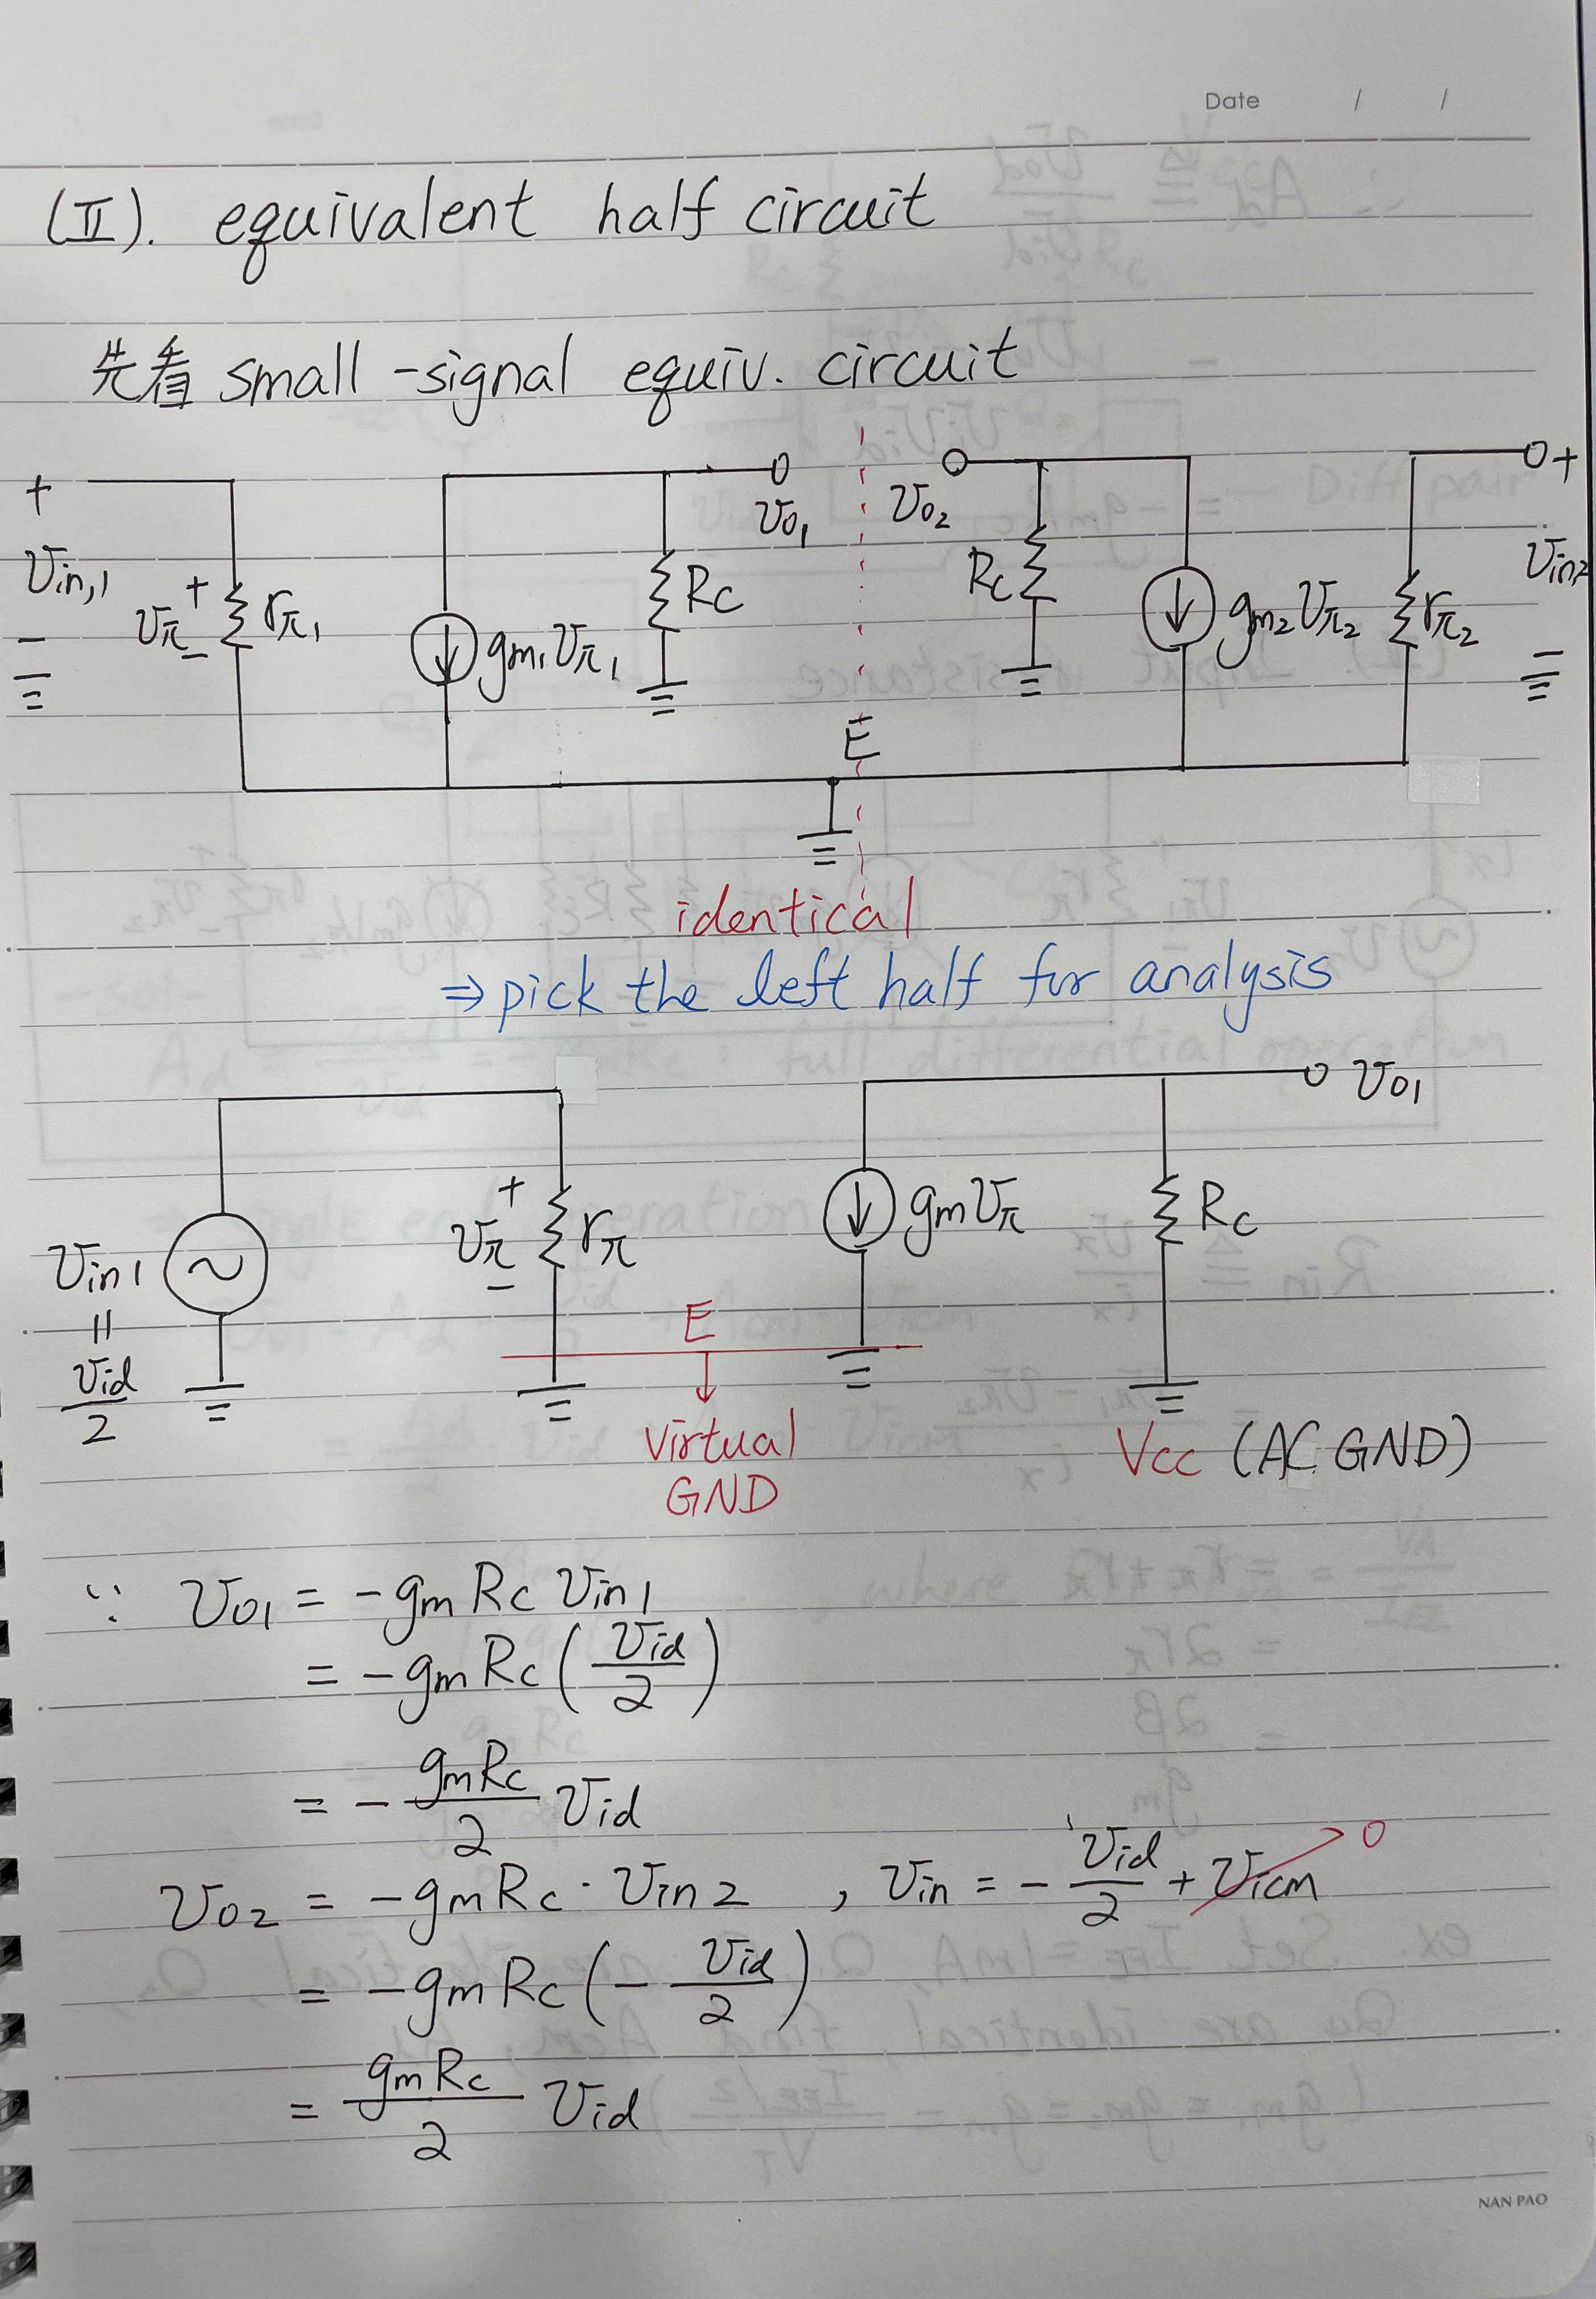 Date / /
(II). equivalent half circuit
先看 small-signal equiv. circuit
+ Vin,1 - + Vπ - rπ1 gm1Vπ1 RC Vo1 Vo2 RC gm2Vπ2 rπ2 + Vin2 -
E
identical
⇒ pick the left half for analysis
Vo1
Vin1 = Vid/2 + Vπ - rπ gmVπ RC
E
Virtual GND
Vcc (AC GND)
∵ Vo1 = -gm RC Vin1
= -gm RC (Vid/2)
= - gmRC/2 Vid
Vo2 = -gm RC · Vin2 , Vin = - Vid/2 + Vicm → 0
= -gm RC (- Vid/2)
= gm RC/2 Vid
NAN PAO